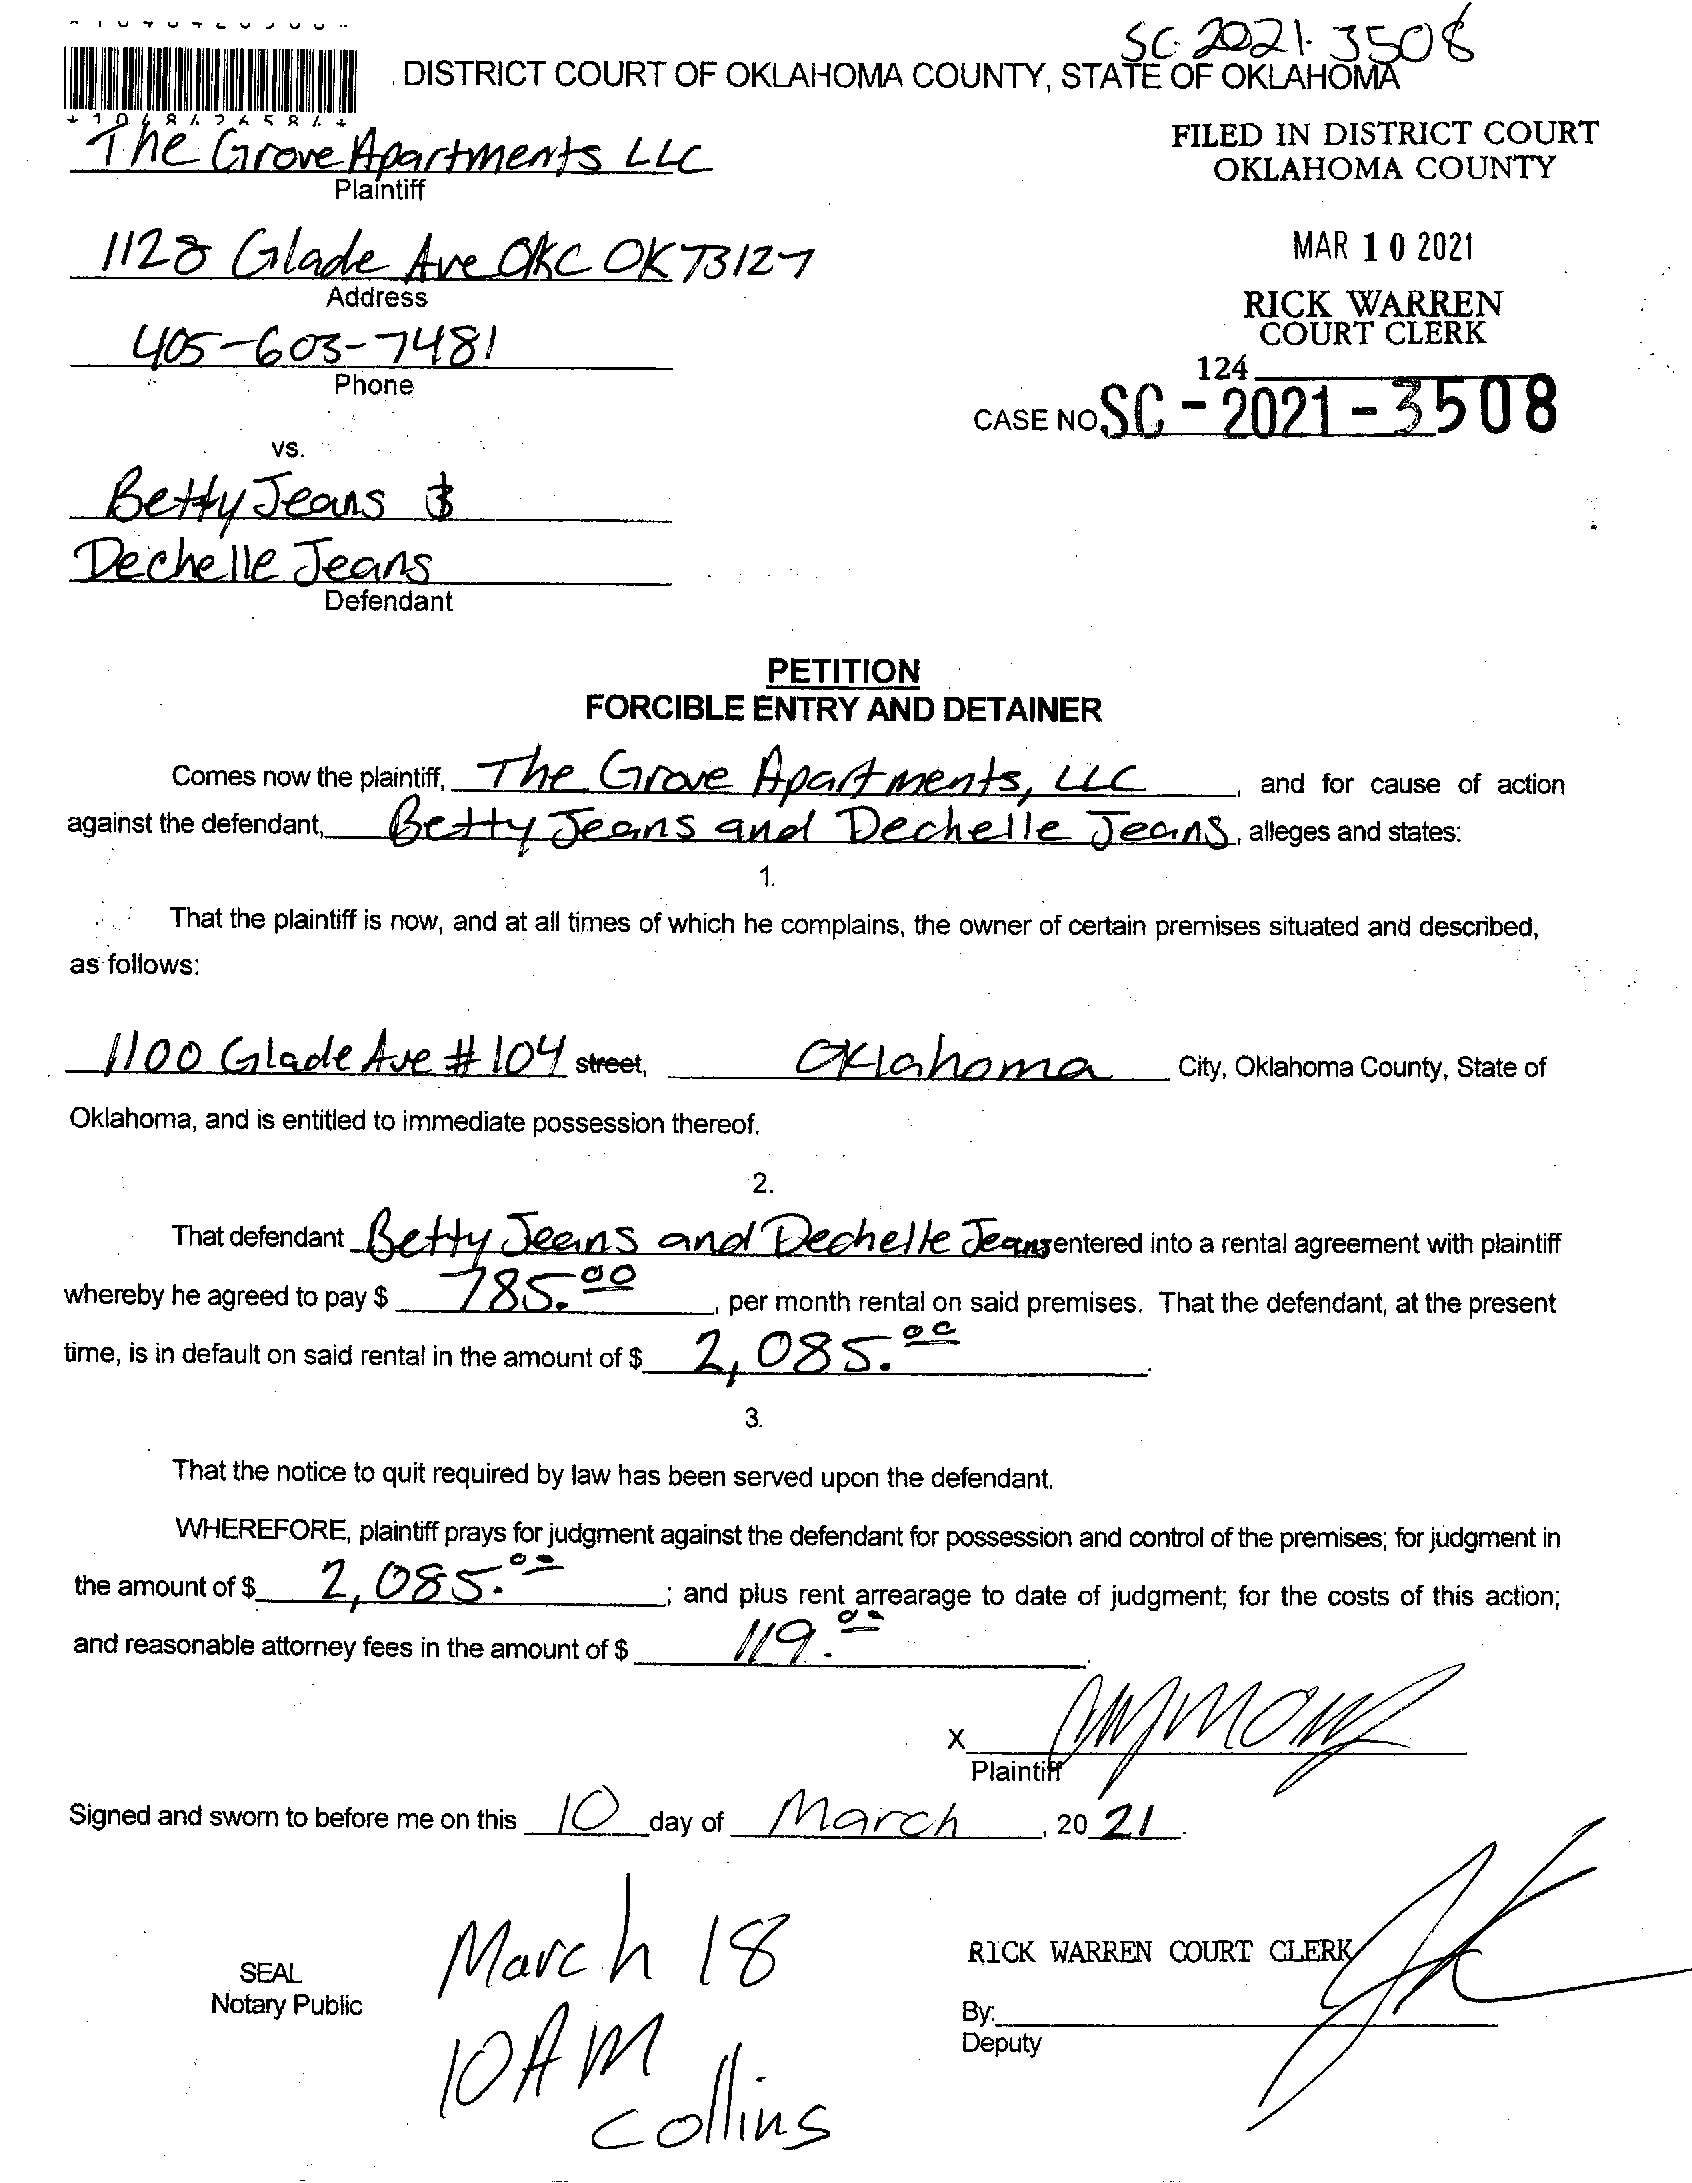 SC-2021-3508
DISTRICT COURT OF OKLAHOMA COUNTY, STATE OF OKLAHOMA
The Grove Apartments LLC
Plaintiff
FILED IN DISTRICT COURT
OKLAHOMA COUNTY
1128 Glade Ave OKC OK 73127
Address
MAR 10 2021
405-603-7481
Phone
RICK WARREN
COURT CLERK
124
CASE NO. SC-2021-3508
vs.
Betty Jeans &
Dechelle Jeans
Defendant
PETITION
FORCIBLE ENTRY AND DETAINER
Comes now the plaintiff, The Grove Apartments, LLC, and for cause of action
against the defendant, Betty Jeans and Dechelle Jeans, alleges and states:
1.
That the plaintiff is now, and at all times of which he complains, the owner of certain premises situated and described,
as follows:
1100 Glade Ave #104 street, Oklahoma City, Oklahoma County, State of
Oklahoma, and is entitled to immediate possession thereof.
2.
That defendant Betty Jeans and Dechelle Jeans entered into a rental agreement with plaintiff
whereby he agreed to pay $ 785.00, per month rental on said premises. That the defendant, at the present
time, is in default on said rental in the amount of $ 2,085.00.
3.
That the notice to quit required by law has been served upon the defendant.
WHEREFORE, plaintiff prays for judgment against the defendant for possession and control of the premises; for judgment in
the amount of $ 2,085.00; and plus rent arrearage to date of judgment; for the costs of this action;
and reasonable attorney fees in the amount of $ 119.00.
X
Plaintiff
Signed and sworn to before me on this 10 day of March, 20 21.
March 18
10 AM
Collins
SEAL
Notary Public
RICK WARREN COURT CLERK
By:
Deputy